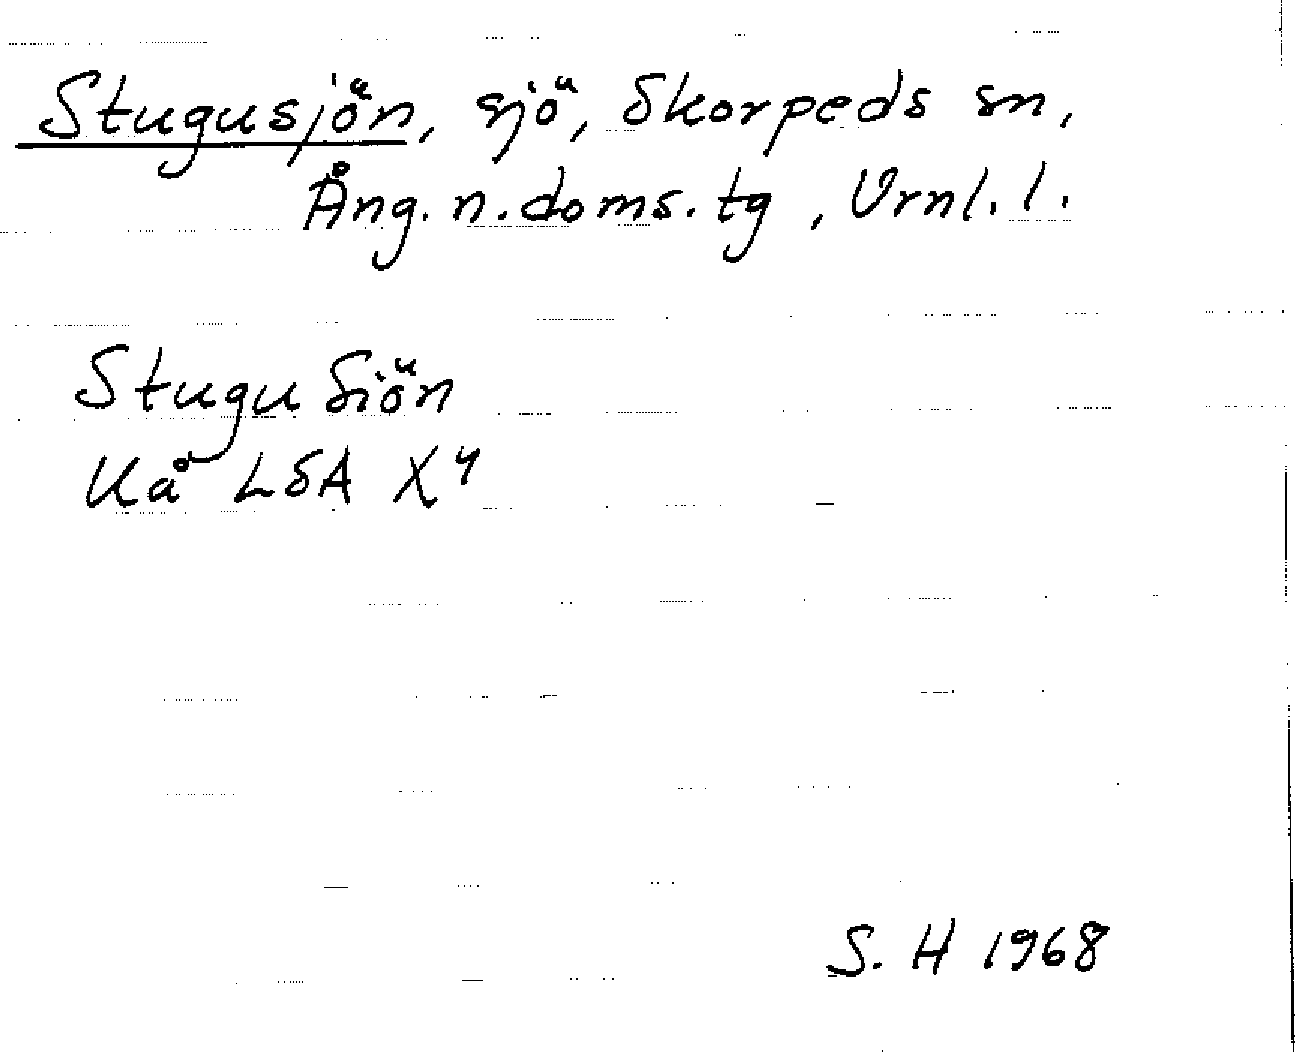 Stugusjön, sjö, Skorpeds sn,
Ång. n. doms. tg, Vrnl. l.
Stugu Siön
Kå LSA X4
S. H 1968